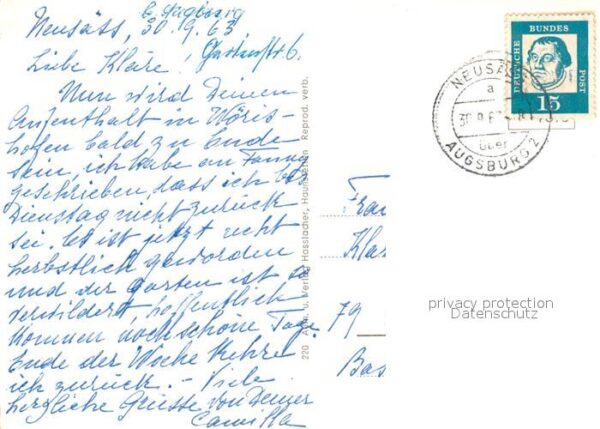 b. Augsburg
Neusäss, 30.9.63
Liebe Kläre! Gartenstr 6.
Nun wird Deinen
Aufenthalt in Wöris-
hofen bald zu Ende
sein, ich habe an
geschrieben, dass ich bis
Dienstag nicht zurück
sei. Es ist jetzt recht
herbstlich geworden
und der Garten ist so
verwildert, hoffentlich
kommen noch schöne Tage.
Ende der Woche kehre
ich zurück. - Viele
herzliche Grüsse von Deiner
Camilla
220 Verlag Hosslacher, Haunstetten Reprod. verb.
DEUTSCHE BUNDES POST
15
NEUSÄSS
a
30.9.63
über
AUGSBURG 2
Frau
Klä
79
Bas
privacy protection
Datenschutz